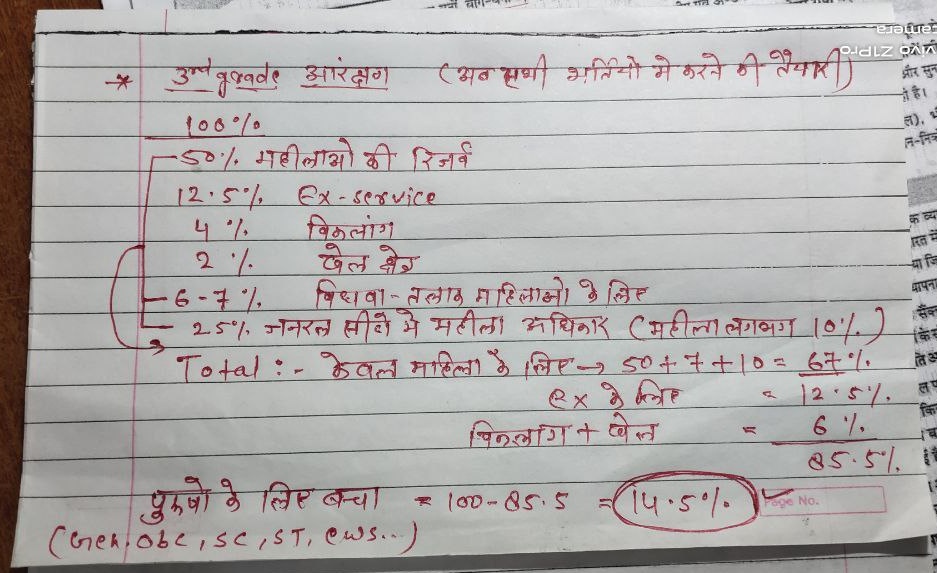 * 3rd grade आरंक्षण (अब सभी भर्तियो मे करने की तैयारी)
100%
50% महीलाओ की रिजर्व
12.5% Ex-service
4 % विकलांग
2 % खेल क्षेत्र
6-7% विधवा-तलाक महिलाओ के लिए
25% जनरल सीटो मे महीला अधिकार (महीला लगवग 10%)
Total :- केवल माहिला के लिए → 50+7+10= 67%
ex के लिए = 12.5%
विकलांग + खेल = 6%
85.5%
पुरुषो के लिए बचा = 100-85.5 = 14.5%
Page No.
(Gen, obc, SC, ST, ews...)